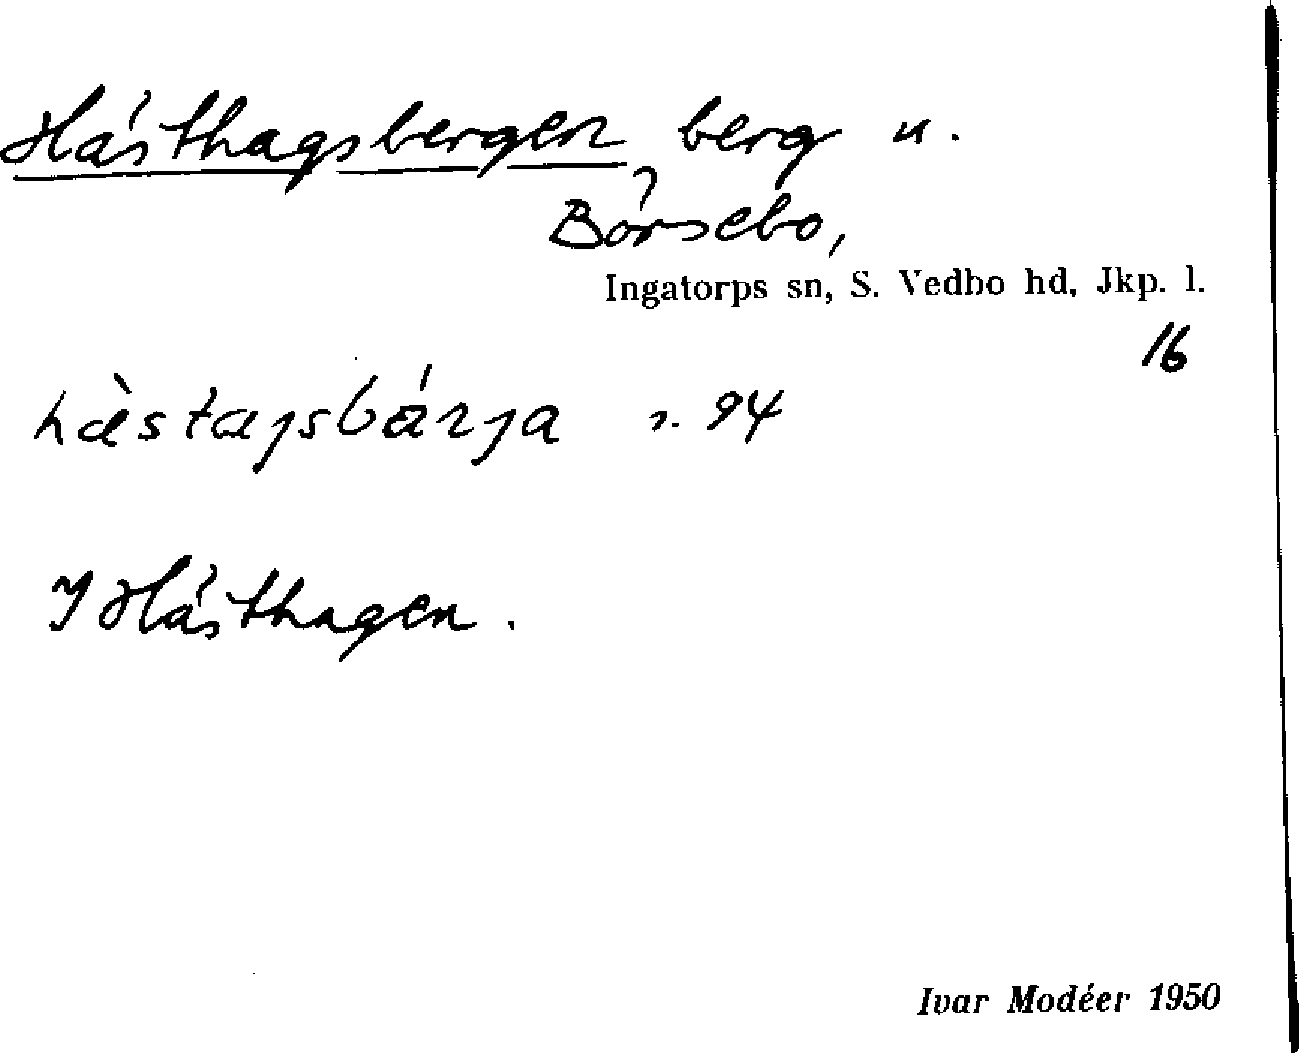 Hästhagsbergen berg u.
Börsebo,
Ingatorps sn, S. Vedbo hd, Jkp. l.
16
hàstajsbárja s. 94
I Hästhagen.
Ivar Modéer 1950